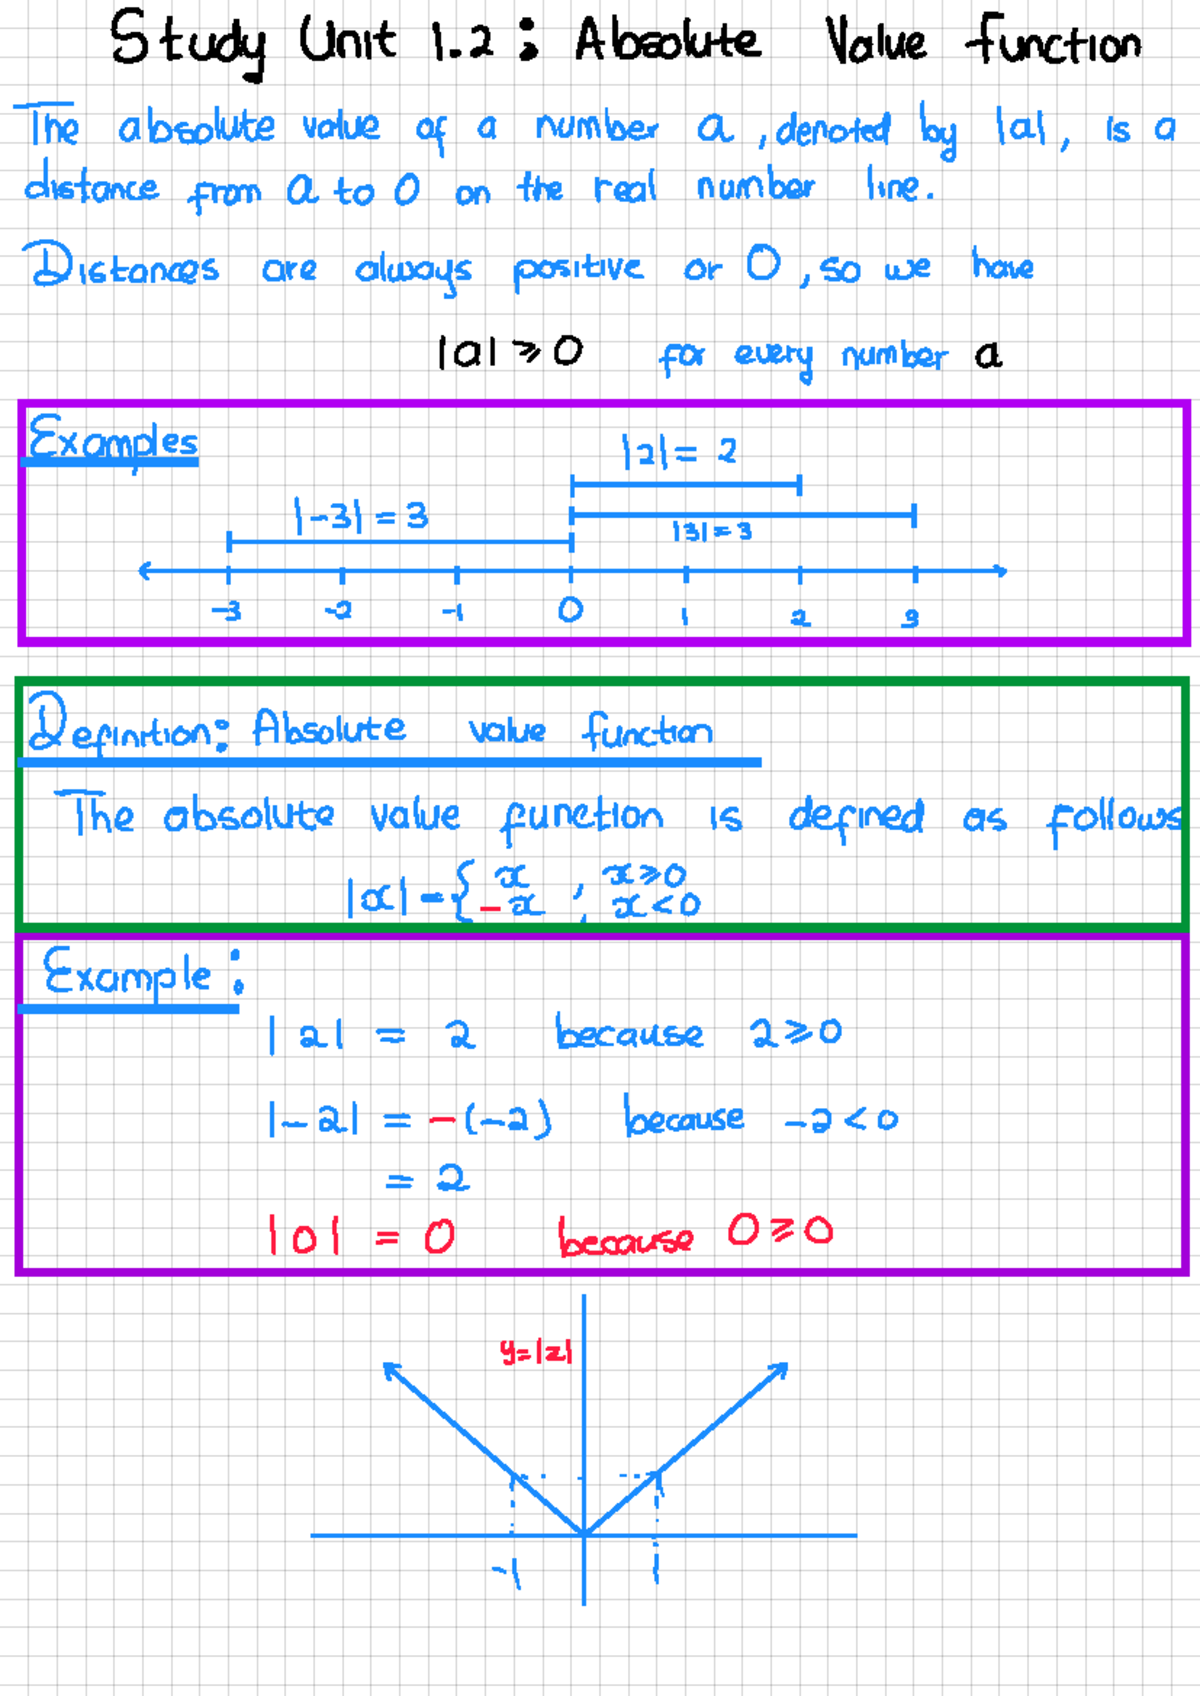 Study Unit 1.2 : Absolute Value function
The absolute value of a number a, denoted by |a|, is a
distance from a to 0 on the real number line.
Distances are always positive or 0, so we have
|a| ⩾ 0 for every number a
Examples
|2| = 2
|-3| = 3
|3| = 3
-3 -2 -1 0 1 2 3
Definition: Absolute value function
The absolute value function is defined as follows
|x| = { x ; x ⩾ 0
-x ; x < 0
Example :
|2| = 2 because 2 ⩾ 0
|-2| = -(-2) because -2 < 0
= 2
|0| = 0 because 0 ⩾ 0
y=|x|
-1 1